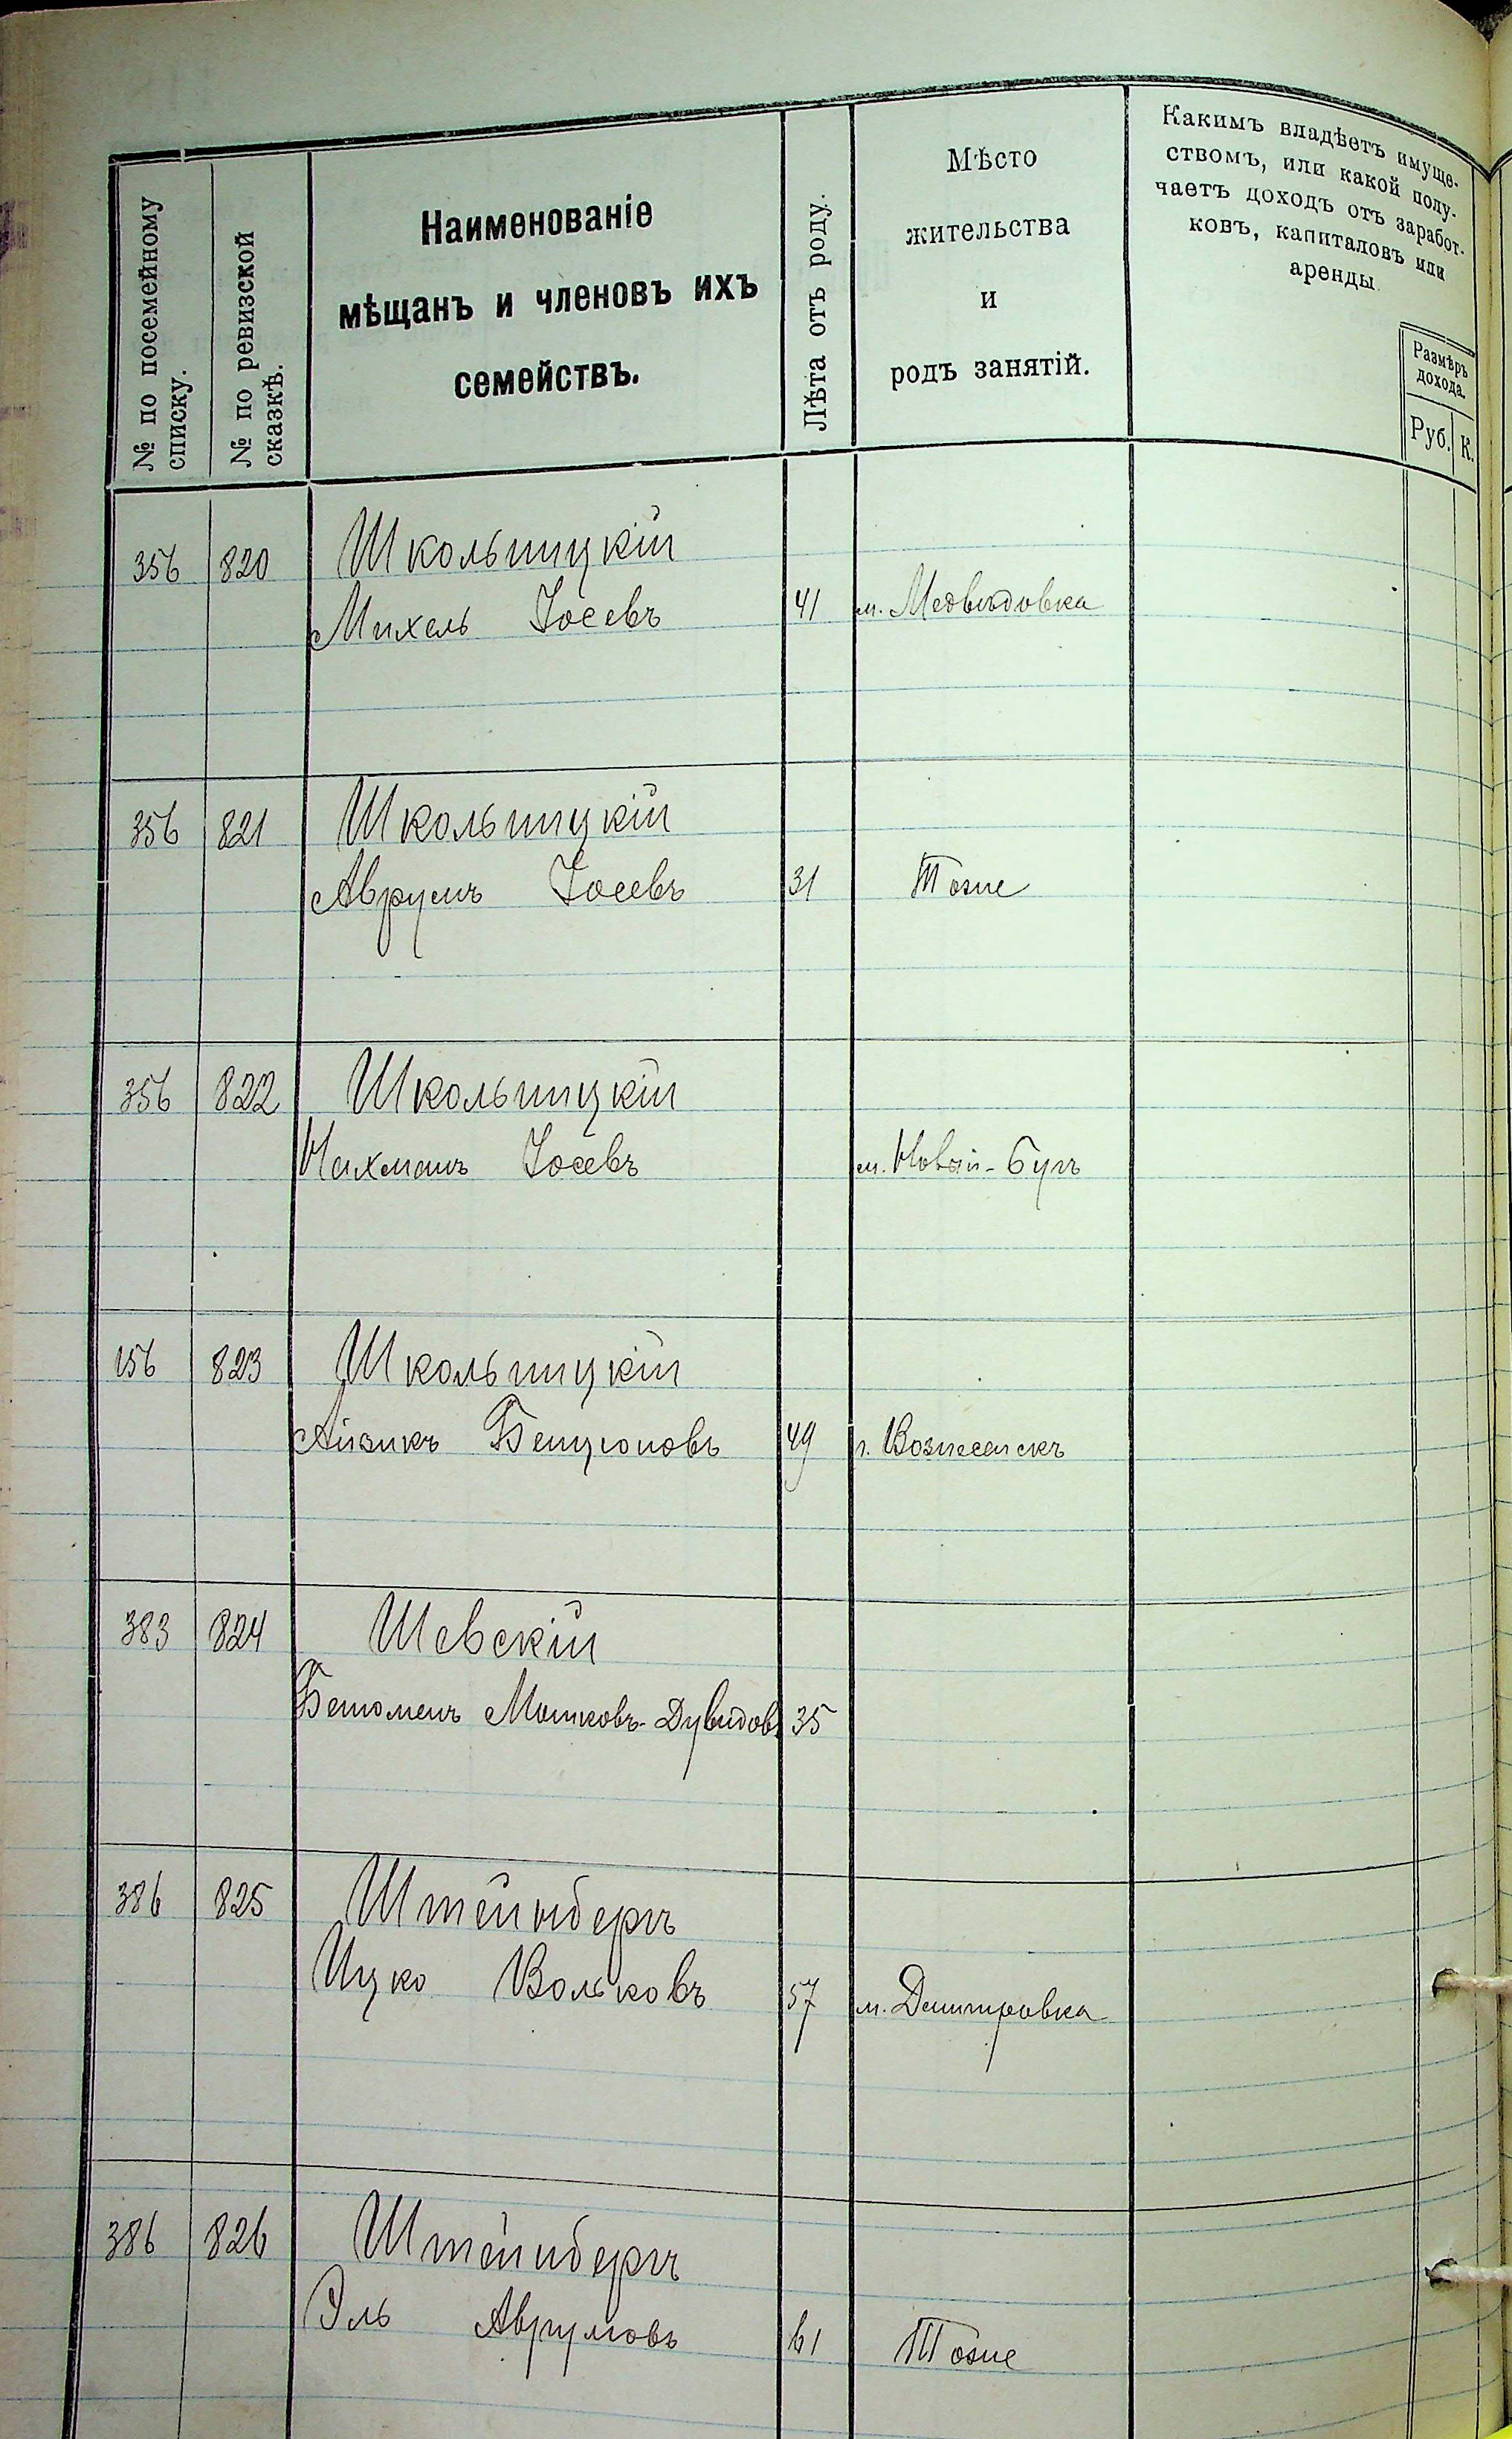 № по посемейному
списку.
№ по ревизской
сказкѣ.
Наименованіе
мѣщанъ и членовъ ихъ
семействъ.
Лѣта отъ роду.
Мѣсто
жительства
и
родъ занятій.
Какимъ владѣетъ имуще-
ствомъ, или какой полу-
чаетъ доходъ отъ заработ-
ковъ, капиталовъ или
аренды.
Размѣръ
дохода.
Руб. К.
356 820 Школьницкій
Михель Іосевъ 41 м. Медвѣдовка
356 821 Школьницкій
Аврумъ Іосевъ 31 Тоже
356 822 Школьницкій
Нахманъ Іосевъ м. Новый-Бугъ
156 823 Школьницкій
Айзикъ Бенціоновъ 49 г. Вознесенскъ
383 824 Шевскій
Мошковъ-Дувидовъ 35
386 825 Штейнбергъ
Ицко Вольковъ 57 м. Димитровка
386 826 Штейнбергъ
Эль Аврумовъ 61 Тоже